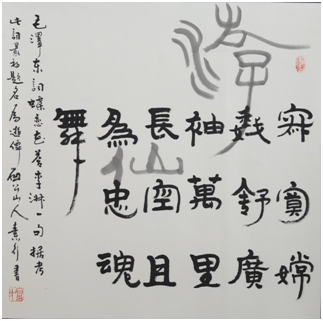 寂寞嫦
娥舒廣
袖萬里
長空且
為忠魂
舞
游仙
毛澤東詞蝶恋花答李淑一句據考
此詞最初題名為遊仙 山人書